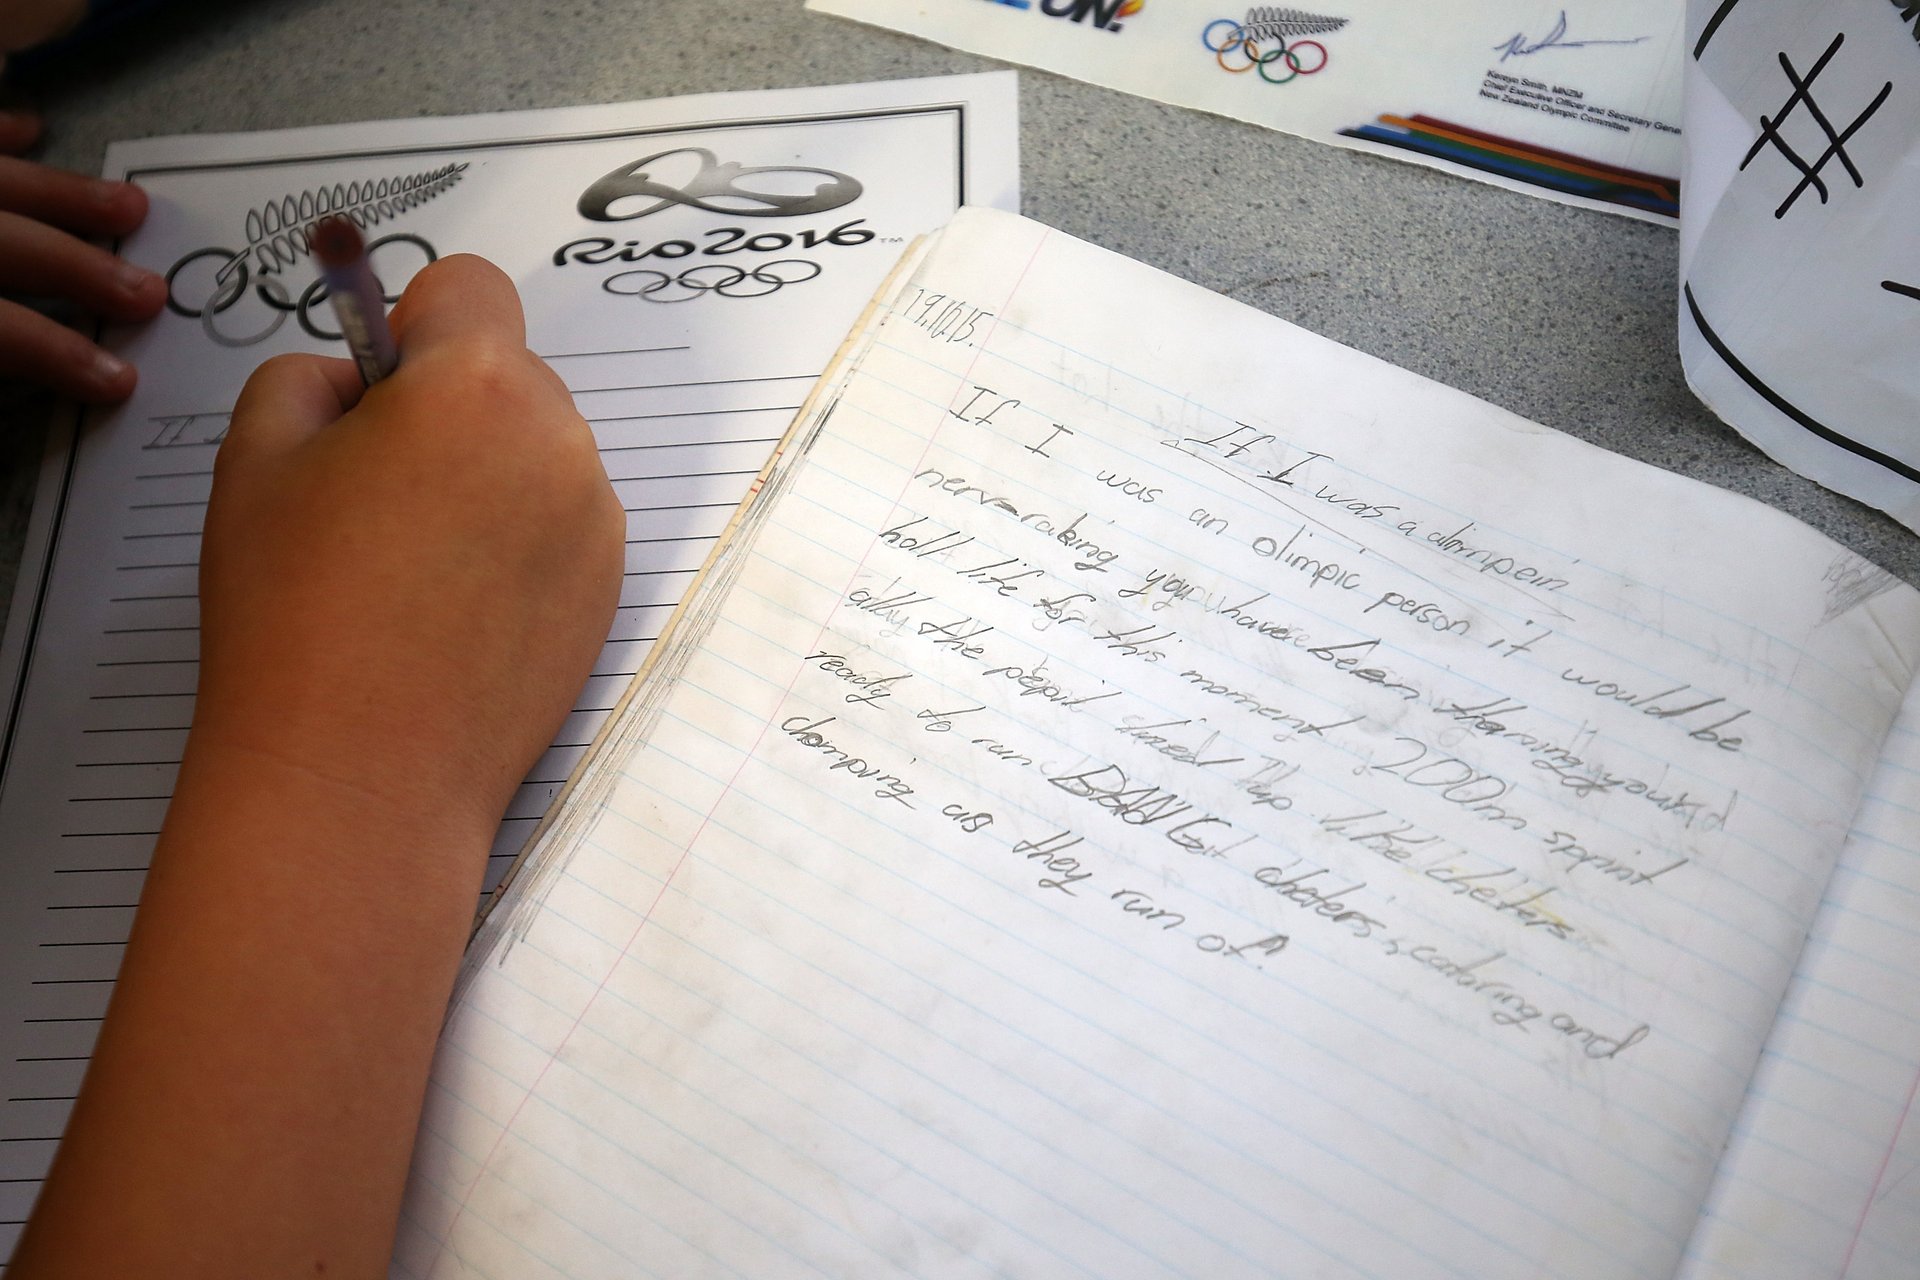 ON.
Kereyn Smith, MNZM
Chief Executive Officer and Secretary Gene
New Zealand Olympic Committee
#
Rio2016™
If I
19.10.15.
If I was a olimpein
If I was an olimpic person it would be
nerv-raking you have been
holl life for this moment 200m sprint
ally the pepil sized 11ap. Like cheiters
ready to run BANG! chaters, and
chomping as they run of.